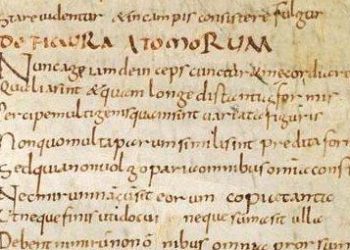 stare uidentur & incampis consistere fulgur
DE FIGURA ATOMORUM
Nuncage iam deinceps cunctar
Qualiasint & quam longe distantia formis
percipe multigenis quamsint uariata figuris
Nonquo multa parum similisint predita for
Sed quia non uolgo paria omnibus omnia cons
Nec mirum nacusit eorum copia tanta
Utneque finis uti docui neque sumasit ulla
Debent nimirum non omnibus omnia prorsum